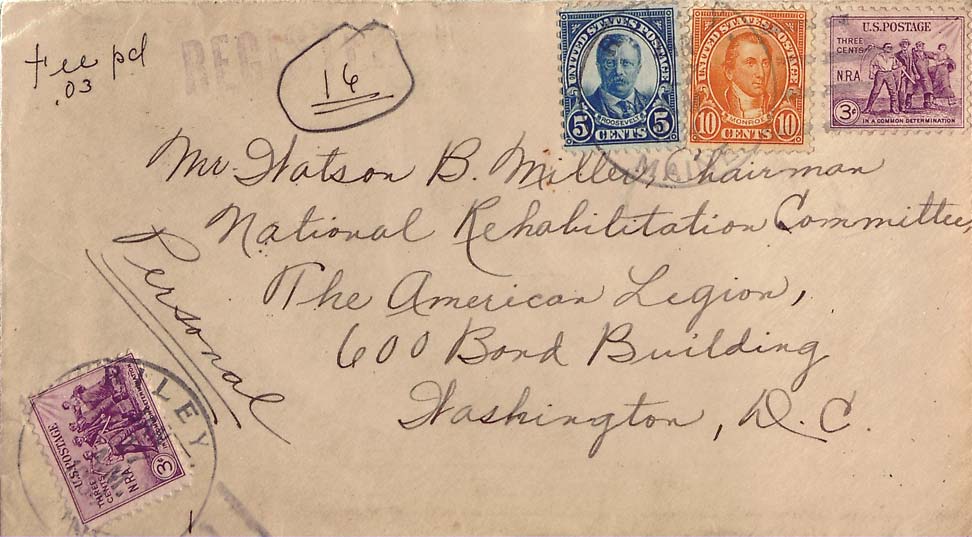 Fee pd
.03
REGISTERED
16
UNITED STATES POSTAGE
ROOSEVELT
5 CENTS 5
UNITED STATES POSTAGE
MONROE
10 CENTS 10
U.S. POSTAGE
THREE CENTS
NRA
3¢
IN A COMMON DETERMINATION
MAIL
Mr. Watson B. Miller, Chairman
National Rehabilitation Committee,
The American Legion,
600 Bond Building
Washington, D.C.
Personal
LEY
U.S. POSTAGE
THREE CENTS
NRA
3¢